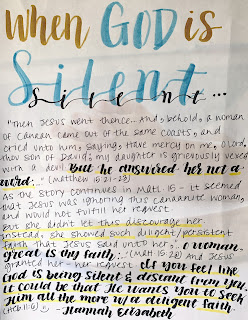 When GOD is
Silent
silent...
"Then Jesus went thence.. and, behold, a woman
of Canaan came out of the same coasts, and
cried unto him, saying, have mercy on me, O Lord,
thou son of David; my daughter is grievously vexed
with a devil. But he answered her not a
word..." (Matthew 15:21-23)
As my story continues in Matt. 15 - it seemed
that Jesus was ignoring this Canaanite woman,
and would not fulfill her request
but she didn't let this discourage her.
Instead, she showed such diligent/persistent
faith that Jesus said unto her.. O woman,
great is thy faith..." (Matt 15:28) And Jesus
granted her her request. If you feel like
God is being silent & distant from you,
it could be that He wants you to seek
Him all the more w/ a diligent faith.
(Heb. 11:6) -Hannah Elizabeth